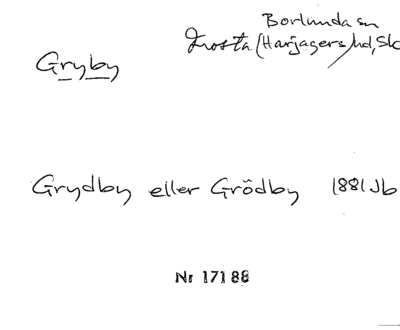 Borlunda sn
Gryby
Frosta (Harjagers) hd, Sk
Grydby eller Grödby 1881 Jb
Nr 17188